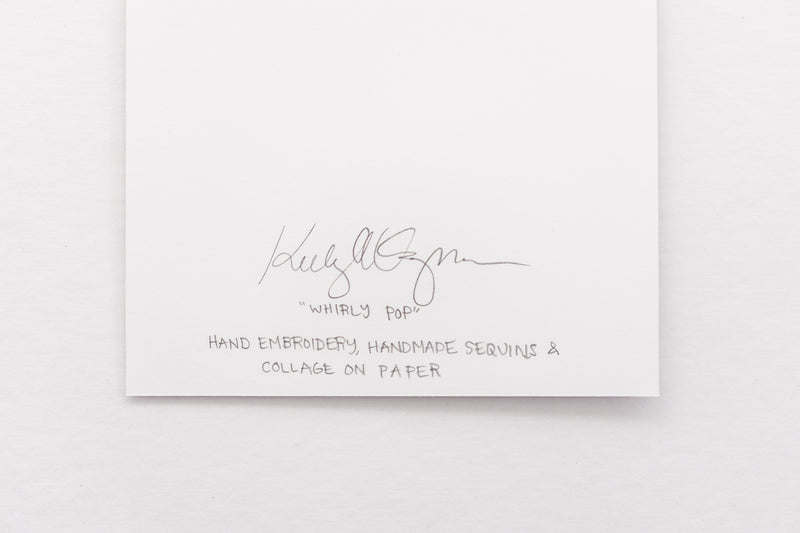 "WHIRLY POP"
HAND EMBROIDERY, HANDMADE SEQUINS &
COLLAGE ON PAPER